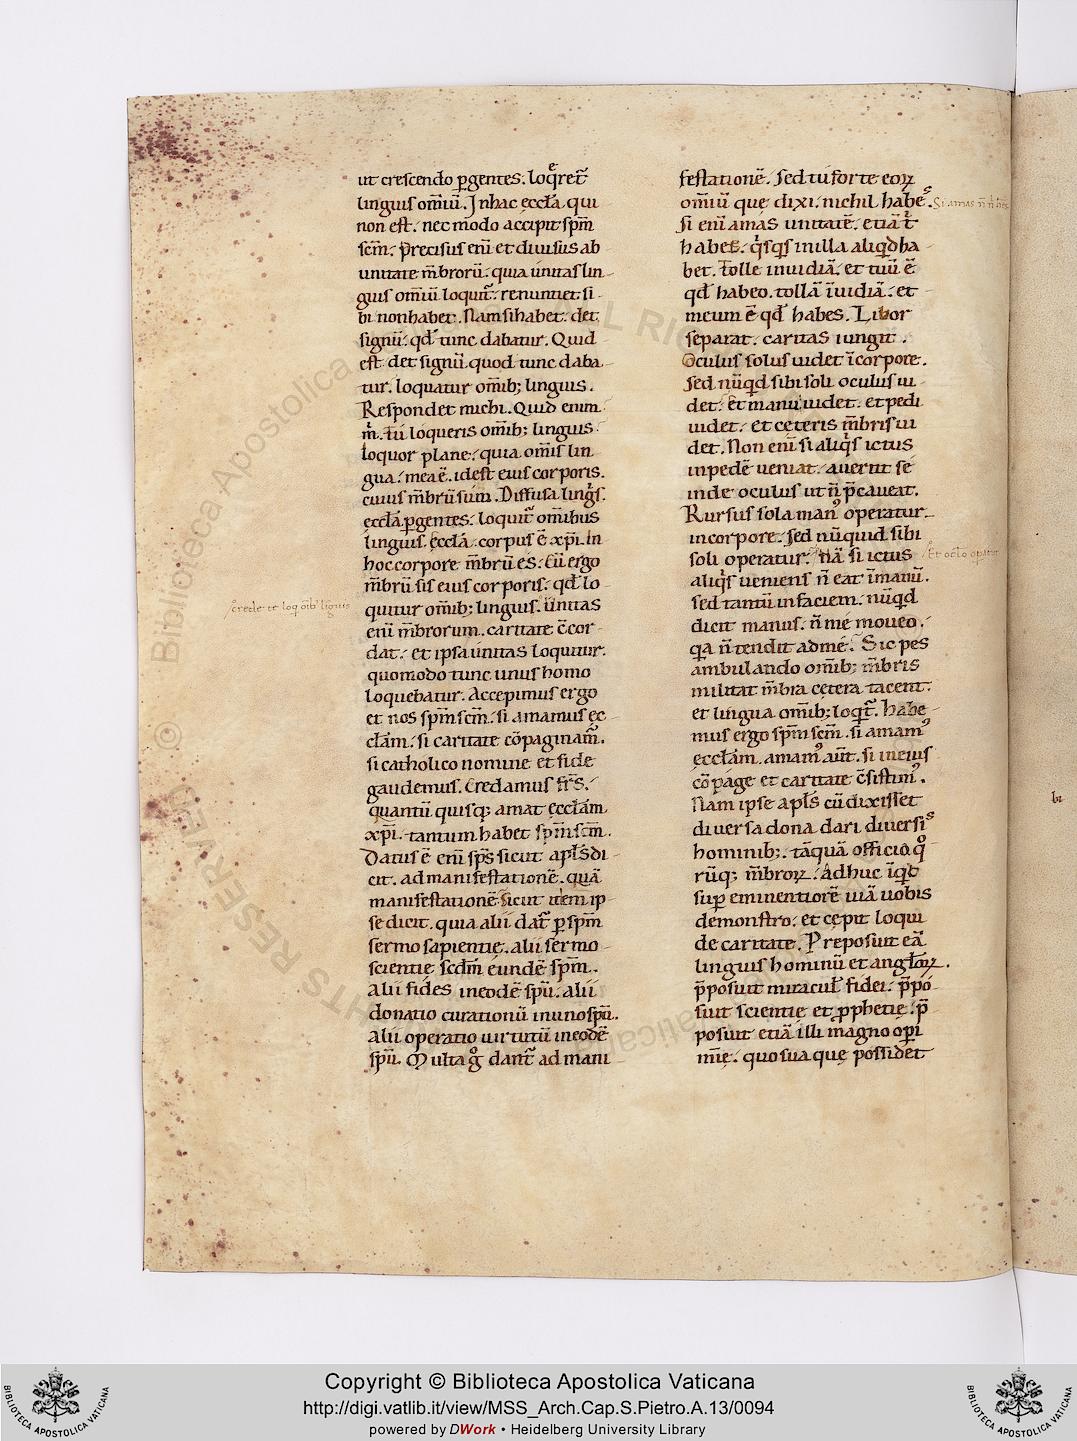 ut crescendo ꝑgentes. loq̄reret᷑
linguis om̄iū. In hac ęccl̄a. qui
non est. nec modo accipit sp̄m
sc̄m. Precisus eni᷑ et diuisus ab
unitate m̄broꝛū. quia unitas lin
guis om̄iū loquit᷑. renuntiet si
bi non habet. Nam si habet. det
signū. qd̄ tunc dabatur. Quid
est. det signū. quod tunc daba
tur. loquatur om̄ib; linguis.
Respondet michi. Quid enim
m̄. tu loqueris om̄ib; linguis.
loquor plane. quia om̄is lin
gua. mea ē. idest eius corporis.
cuius m̄brū sum. Diffusa lingᷤs.
ęccl̄a ꝑgentes. loquit᷑ om̄ibus
linguis. ęccl̄a corpus ē xp̄i. in
hoc corpore m̄brū es. Cū ergo
m̄brū sis eius corporis. qd̄ lo
quitur om̄ib; linguis. unitas
eni᷑ m̄brorum. caritate c̄cor
dat. et ipsa unitas loquitur.
quomodo tunc unus homo
loquebatur. Accepimus ergo
et nos sp̄m sc̄m. si amamus ęc
cl̄am. si caritate cōpaginam᷑.
si catholico nomine et fide
gaudemus. Credamus fr̄s.
quantū quisq; amat ęccl̄am
xp̄i. tantum habet sp̄m sc̄m.
Datus ē eni᷑ sp̄s sicut apl̄s di
cit. ad manifestationē. quā
manifestationē. sicut idem ip
se dicit. quia alii dat᷑ ꝑ sp̄m
sermo sapientię. alii sermo
scientię sc̄dm̄ eundē sp̄m.
Alii fides in eodē sp̄u. alii
donatio curationū in uno sp̄u.
Alii operatio uirtutū in eodē
sp̄u. Multa gͦ dant᷑ ad mani
festationē. Sed tu forte eoꝝ
om̄iū quę dixi. nichil habeˢ.
Si eni᷑ amas unitatē. etiā t̄
habes. qͥsqͥs in illa aliqd̄ ha
bet. Tolle inuidiā. et tuū ē
qd̄ habeo. tollā īuidiā. et
meum ē qd̄ habes. Libor
separat. caritas iungit.
Oculus solus uidet ī corpore.
Sed nūqd̄ sibi soli oculus ui
det. et manui uidet. et pedi
uidet. et ceteris m̄bris ui
det. Non eni᷑ si aliqͥs ictus
in pedē ueniat. auertit se
inde oculus ut n̄ p̄caueat.
Rursus sola manꝰ operatur
in corpore. sed nūquid sibi
soli operatur. Nā si ictus
aliqͥs ueniens n̄ eat ī manū.
sed tantū in faciem. nūqd̄
dicit manus. n̄ me moueo.
qa n̄ tendit ad me. Sic pes
ambulando om̄ib; m̄bris
militat m̄bra cętera tacent.
et lingua om̄ib; loqt᷑. Habe
mus ergo sp̄m sc̄m. si amamꝰ
ęccl̄am. amamꝰ aūt. si in eius
cōpage et caritate c̄sistimꝰ.
Nam ipse apl̄s cū dixisset
diuersa dona dari diuersiˢ
hominib;. tāquā officia qͦ
rūq; m̄broꝝ. Adhuc īqd̄
suꝑeminentiorē uiā uobis
demonstro. et cępit loqui
de caritate. Preposuit eā
linguis hominū et angl̄oꝝ.
p̄posuit miracul᷑ fidei. p̄po
suit scientię et ꝓphetię. p̄
posuit etiā illi magno oꝑi
mīę. quo sua quę possidet
crede te loq̄ om̄ib; linguis
bi
Copyright © Biblioteca Apostolica Vaticana
http://digi.vatlib.it/view/MSS_Arch.Cap.S.Pietro.A.13/0094
powered by DWork • Heidelberg University Library
BIBLIOTECA APOSTOLICA VATICANA
BIBLIOTECA APOSTOLICA VATICANA